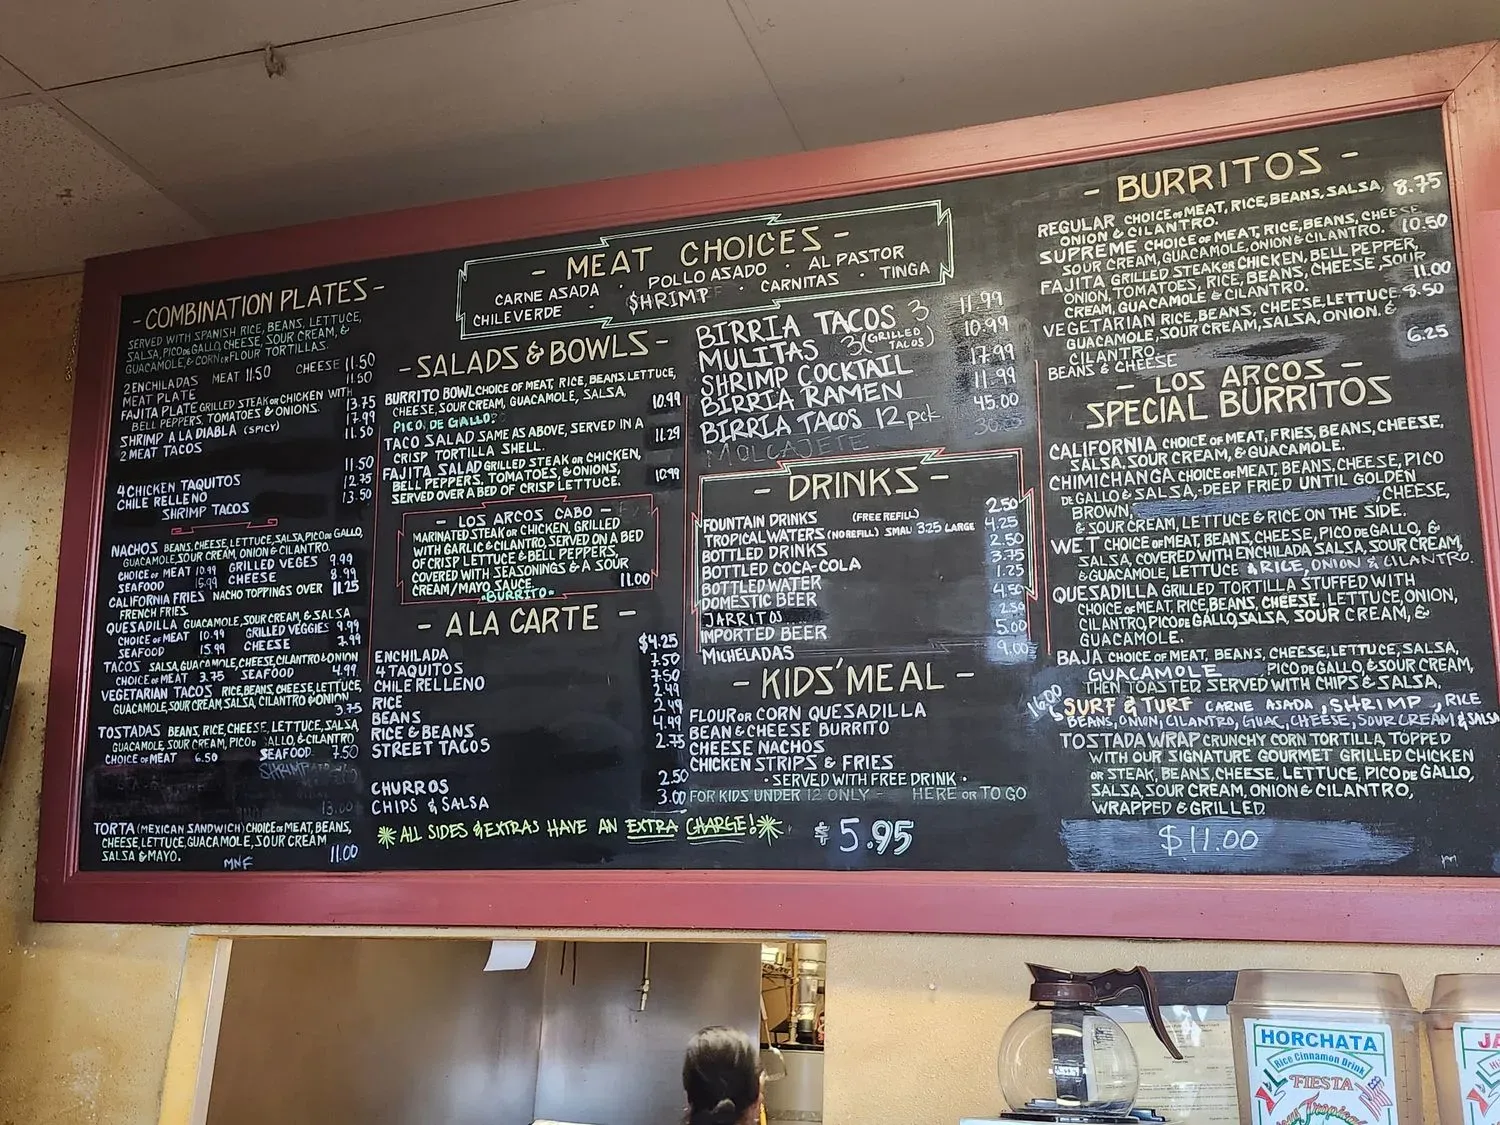 - COMBINATION PLATES -
SERVED WITH SPANISH RICE, BEANS, LETTUCE,
SALSA, PICO DE GALLO, CHEESE, SOUR CREAM, &
GUACAMOLE, & CORN OR FLOUR TORTILLAS.
2 ENCHILADAS MEAT 11.50 CHEESE 11.50
MEAT PLATE 11.50
FAJITA PLATE GRILLED STEAK OR CHICKEN WITH
BELL PEPPERS, TOMATOES & ONIONS. 13.75
SHRIMP A LA DIABLA (SPICY) 17.99
2 MEAT TACOS 11.50
4 CHICKEN TAQUITOS 11.50
CHILE RELLENO 12.75
SHRIMP TACOS 13.50
NACHOS BEANS, CHEESE, LETTUCE, SALSA, PICO DE GALLO,
GUACAMOLE, SOUR CREAM, ONION & CILANTRO.
CHOICE OF MEAT 10.99 GRILLED VEGES 9.99
SEAFOOD 15.99 CHEESE 8.99
CALIFORNIA FRIES NACHO TOPPINGS OVER 11.25
FRENCH FRIES.
QUESADILLA GUACAMOLE, SOUR CREAM, & SALSA
CHOICE OF MEAT 10.99 GRILLED VEGGIES 9.99
SEAFOOD 15.99 CHEESE 7.99
TACOS SALSA, GUACAMOLE, CHEESE, CILANTRO & ONION
CHOICE OF MEAT 3.75 SEAFOOD 4.99
VEGETARIAN TACOS RICE, BEANS, CHEESE, LETTUCE,
GUACAMOLE, SOUR CREAM, SALSA, CILANTRO & ONION
3.75
TOSTADAS BEANS, RICE, CHEESE, LETTUCE, SALSA
GUACAMOLE, SOUR CREAM, PICO DE GALLO, & CILANTRO
CHOICE OF MEAT 6.50 SEAFOOD 7.50
SHRIMP
13.00
TORTA (MEXICAN SANDWICH) CHOICE OF MEAT, BEANS,
CHEESE, LETTUCE, GUACAMOLE, SOUR CREAM
SALSA & MAYO. 11.00
MNF
- MEAT CHOICES -
CARNE ASADA · POLLO ASADO · AL PASTOR
CHILE VERDE · $HRIMP · CARNITAS · TINGA
- SALADS & BOWLS -
BURRITO BOWL CHOICE OF MEAT, RICE, BEANS, LETTUCE,
CHEESE, SOUR CREAM, GUACAMOLE, SALSA, 10.99
PICO DE GALLO.
TACO SALAD SAME AS ABOVE, SERVED IN A 11.29
CRISP TORTILLA SHELL.
FAJITA SALAD GRILLED STEAK OR CHICKEN,
BELL PEPPERS, TOMATOES, & ONIONS, 10.99
SERVED OVER A BED OF CRISP LETTUCE.
- LOS ARCOS CABO -
MARINATED STEAK OR CHICKEN, GRILLED
WITH GARLIC & CILANTRO, SERVED ON A BED
OF CRISP LETTUCE & BELL PEPPERS,
COVERED WITH SEASONINGS & A SOUR
CREAM/MAYO SAUCE. 11.00
-BURRITO-
- A LA CARTE -
ENCHILADA $4.25
4 TAQUITOS 7.50
CHILE RELLENO 7.50
RICE 2.49
BEANS 2.49
RICE & BEANS 4.49
STREET TACOS 2.75
CHURROS 2.50
CHIPS & SALSA 3.00
ALL SIDES & EXTRAS HAVE AN EXTRA CHARGE!
BIRRIA TACOS 3 11.99
MULITAS 3 (GRILLED TACOS) 10.99
SHRIMP COCKTAIL 17.99
BIRRIA RAMEN 11.99
BIRRIA TACOS 12 pck 45.00
MOLCAJETE 30.00
- DRINKS -
FOUNTAIN DRINKS (FREE REFILL) 2.50
TROPICAL WATERS (NO REFILL) SMALL 3.25 LARGE 4.25
BOTTLED DRINKS 2.50
BOTTLED COCA-COLA 3.75
BOTTLED WATER 1.25
DOMESTIC BEER 4.50
JARRITOS 2.50
IMPORTED BEER 5.00
MICHELADAS 9.00
- KIDS' MEAL -
FLOUR OR CORN QUESADILLA
BEAN & CHEESE BURRITO
CHEESE NACHOS
CHICKEN STRIPS & FRIES
· SERVED WITH FREE DRINK ·
FOR KIDS UNDER 12 ONLY - HERE OR TO GO
$5.95
- BURRITOS -
REGULAR CHOICE OF MEAT, RICE, BEANS, SALSA, 8.75
ONION & CILANTRO.
SUPREME CHOICE OF MEAT, RICE, BEANS, CHEESE
SOUR CREAM, GUACAMOLE, ONION & CILANTRO. 10.50
FAJITA GRILLED STEAK OR CHICKEN, BELL PEPPER,
ONION, TOMATOES, RICE, BEANS, CHEESE, SOUR
CREAM, GUACAMOLE & CILANTRO. 11.00
VEGETARIAN RICE, BEANS, CHEESE, LETTUCE 8.50
GUACAMOLE, SOUR CREAM, SALSA, ONION. &
CILANTRO
BEANS & CHEESE 6.25
- LOS ARCOS -
SPECIAL BURRITOS
CALIFORNIA CHOICE OF MEAT, FRIES, BEANS, CHEESE,
SALSA, SOUR CREAM, & GUACAMOLE.
CHIMICHANGA CHOICE OF MEAT, BEANS, CHEESE, PICO
DE GALLO & SALSA, -DEEP FRIED UNTIL GOLDEN
BROWN, CHEESE,
& SOUR CREAM, LETTUCE & RICE ON THE SIDE.
WET CHOICE OF MEAT, BEANS, CHEESE, PICO DE GALLO, &
SALSA, COVERED WITH ENCHILADA SALSA, SOUR CREAM,
& GUACAMOLE, LETTUCE & RICE, ONION & CILANTRO.
QUESADILLA GRILLED TORTILLA STUFFED WITH
CHOICE OF MEAT, RICE, BEANS, CHEESE, LETTUCE, ONION,
CILANTRO, PICO DE GALLO, SALSA, SOUR CREAM, &
GUACAMOLE.
BAJA CHOICE OF MEAT, BEANS, CHEESE, LETTUCE, SALSA,
GUACAMOLE PICO DE GALLO, & SOUR CREAM,
THEN TOASTED. SERVED WITH CHIPS & SALSA.
16.00 SURF & TURF CARNE ASADA, SHRIMP, RICE
BEANS, ONION, CILANTRO, GUAC, CHEESE, SOUR CREAM & SALSA
TOSTADA WRAP CRUNCHY CORN TORTILLA, TOPPED
WITH OUR SIGNATURE GOURMET GRILLED CHICKEN
OR STEAK, BEANS, CHEESE, LETTUCE, PICO DE GALLO,
SALSA, SOUR CREAM, ONION & CILANTRO,
WRAPPED & GRILLED.
$11.00
HORCHATA
Rice Cinnamon Drink
FIESTA
JA